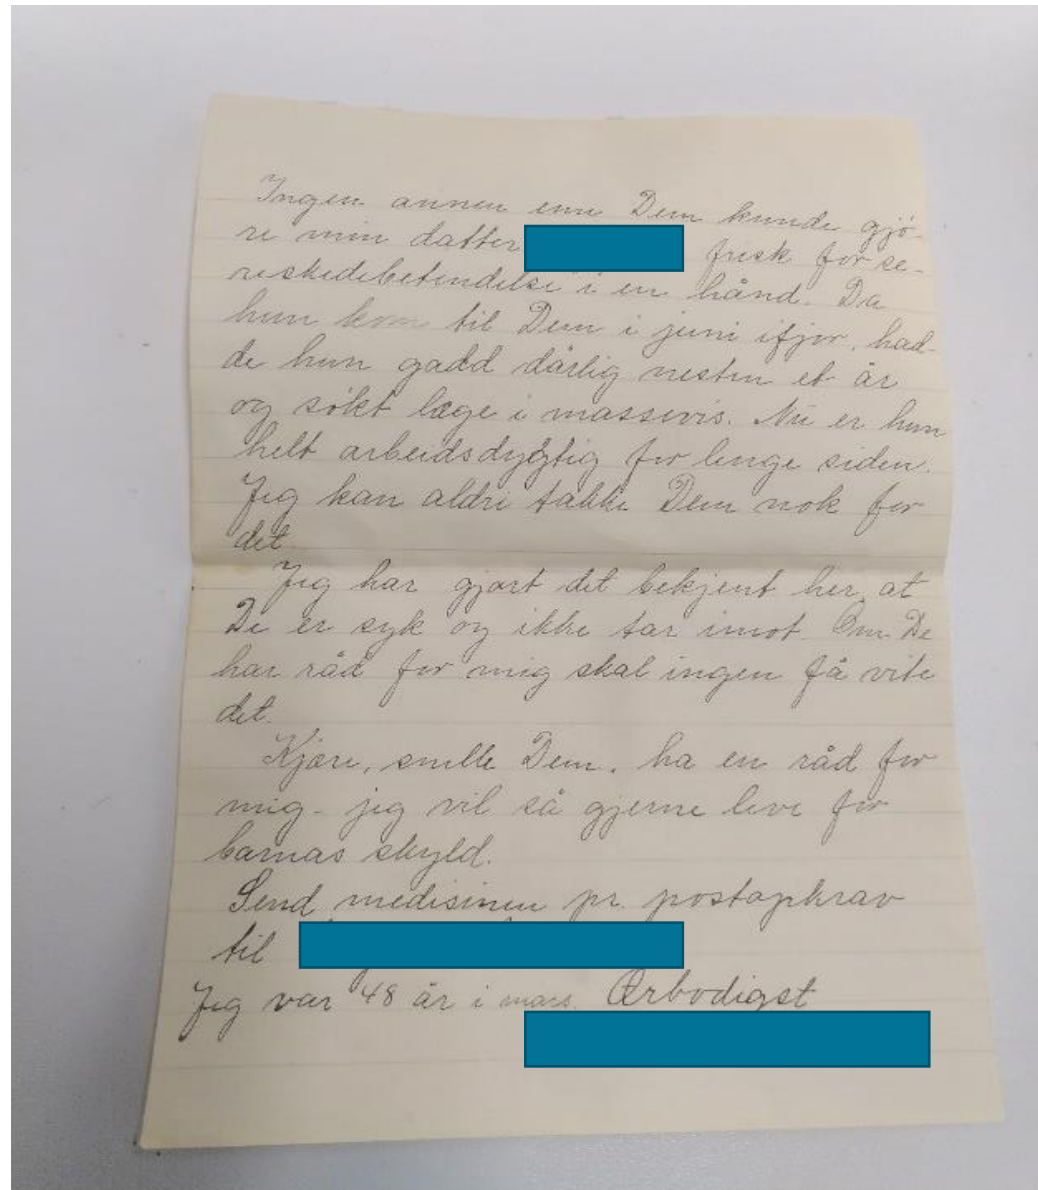 Ingen annen enn Dem kunde gjö-
re min datter frisk for se-
neskedebetendelse i en hånd. Da
hun kom til Dem i juni ifjor, had-
de hun gådd dårlig nesten et år
og søkt læge i massevis. Nu er hun
helt arbeidsdygtig for lenge siden.
Jeg kan aldri takke Dem nok for
det.
Jeg har gjort det bekjent her, at
De er syk og ikke tar imot. Om De
har råd for mig skal ingen få vite
det.
Kjære, snille Dem, ha en råd for
mig - jeg vil så gjerne leve for
barnas skyld.
Send medisinen pr. postopkrav
til
Jeg var 48 år i mars. Ærbødigst